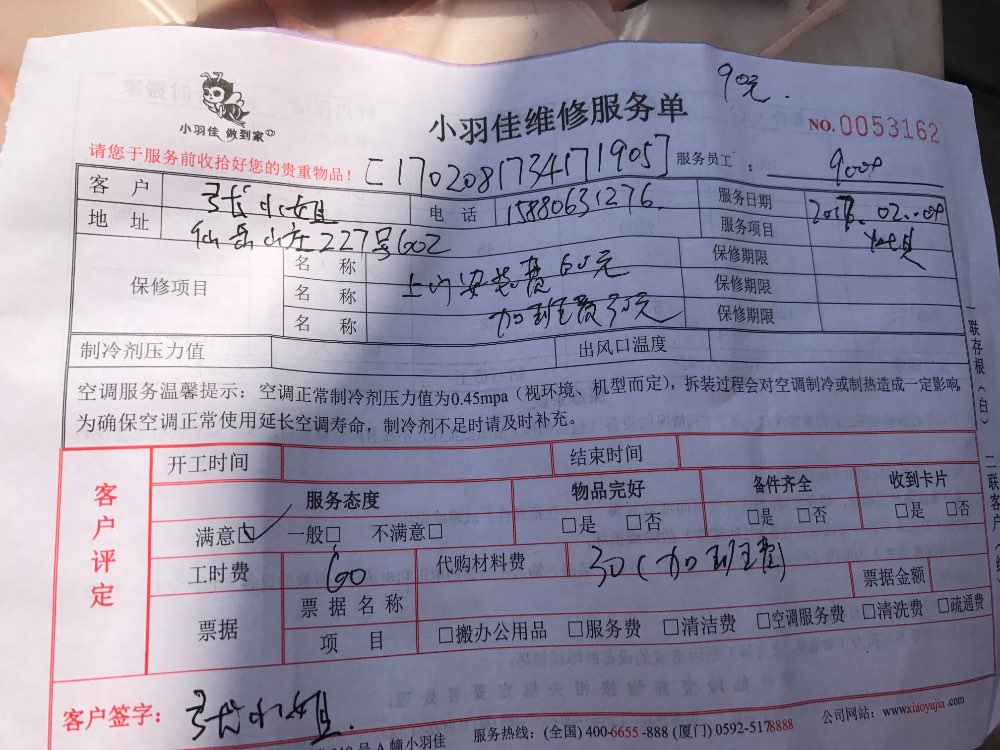 90元.
小羽佳 做到家
小羽佳维修服务单
NO.0053162
请您于服务前收拾好您的贵重物品!
[1702081734171905]
服务员工:
客户 张小姐 电话 15880631276. 服务日期
地址 仙岳山庄227号602 服务项目
保修项目
名称 上门安装费60元 保修期限
名称 加班费30元 保修期限
名称 保修期限
制冷剂压力值 出风口温度
空调服务温馨提示:空调正常制冷剂压力值为0.45mpa(视环境、机型而定),拆装过程会对空调制冷或制热造成一定影响,
为确保空调正常使用延长空调寿命,制冷剂不足时请及时补充。
客户评定
开工时间 结束时间
服务态度 物品完好 备件齐全 收到卡片
满意☑ 一般□ 不满意□ □是 □否 □是 □否 □是 □否
工时费 60 代购材料费 30(加班费)
票据 票据名称 票据金额
项目 □搬办公用品 □服务费 □清洁费 □空调服务费 □清洗费 □疏通费
客户签字: 张小姐.
号A幢小羽佳 服务热线:(全国)400-6655-888 (厦门)0592-5178888 公司网站:www.xiaoyujia.com
一联存根(白)
二联客